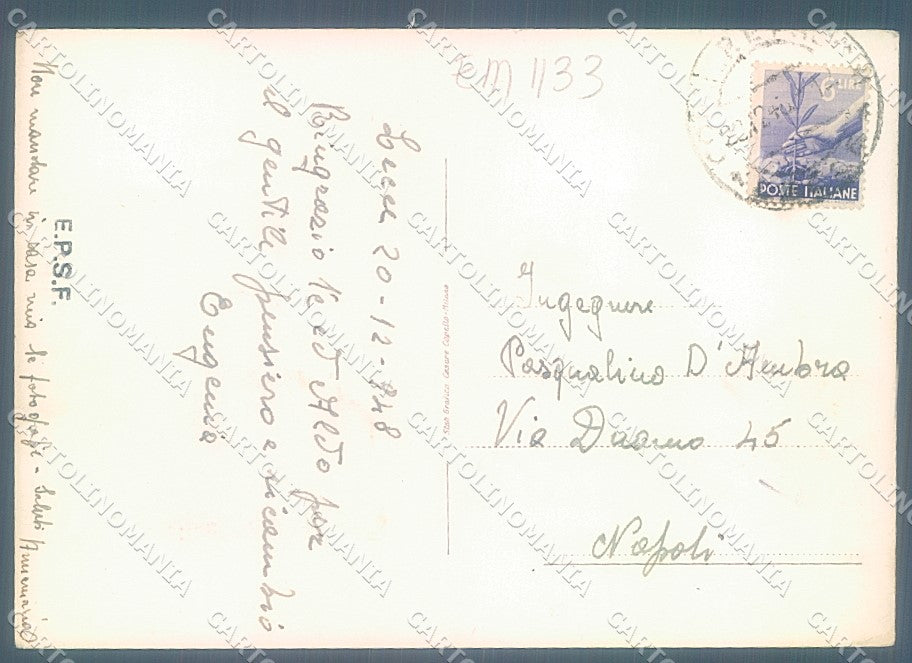 EM 1133
6 LIRE
POSTE ITALIANE
Lecce 20-12-948
Ringrazio Ve ed Aldo per
il gentile pensiero e ricambio
Eugenia
Non mandare in casa mia le fotografie - Saluti Annamaria
E.P.S.F.
Stab. Grafico Cesare Capello - Milano
Ingegnere
Pasqualino D'Ambra
Via Duomo 45
Napoli
CARTOLINOMANIA